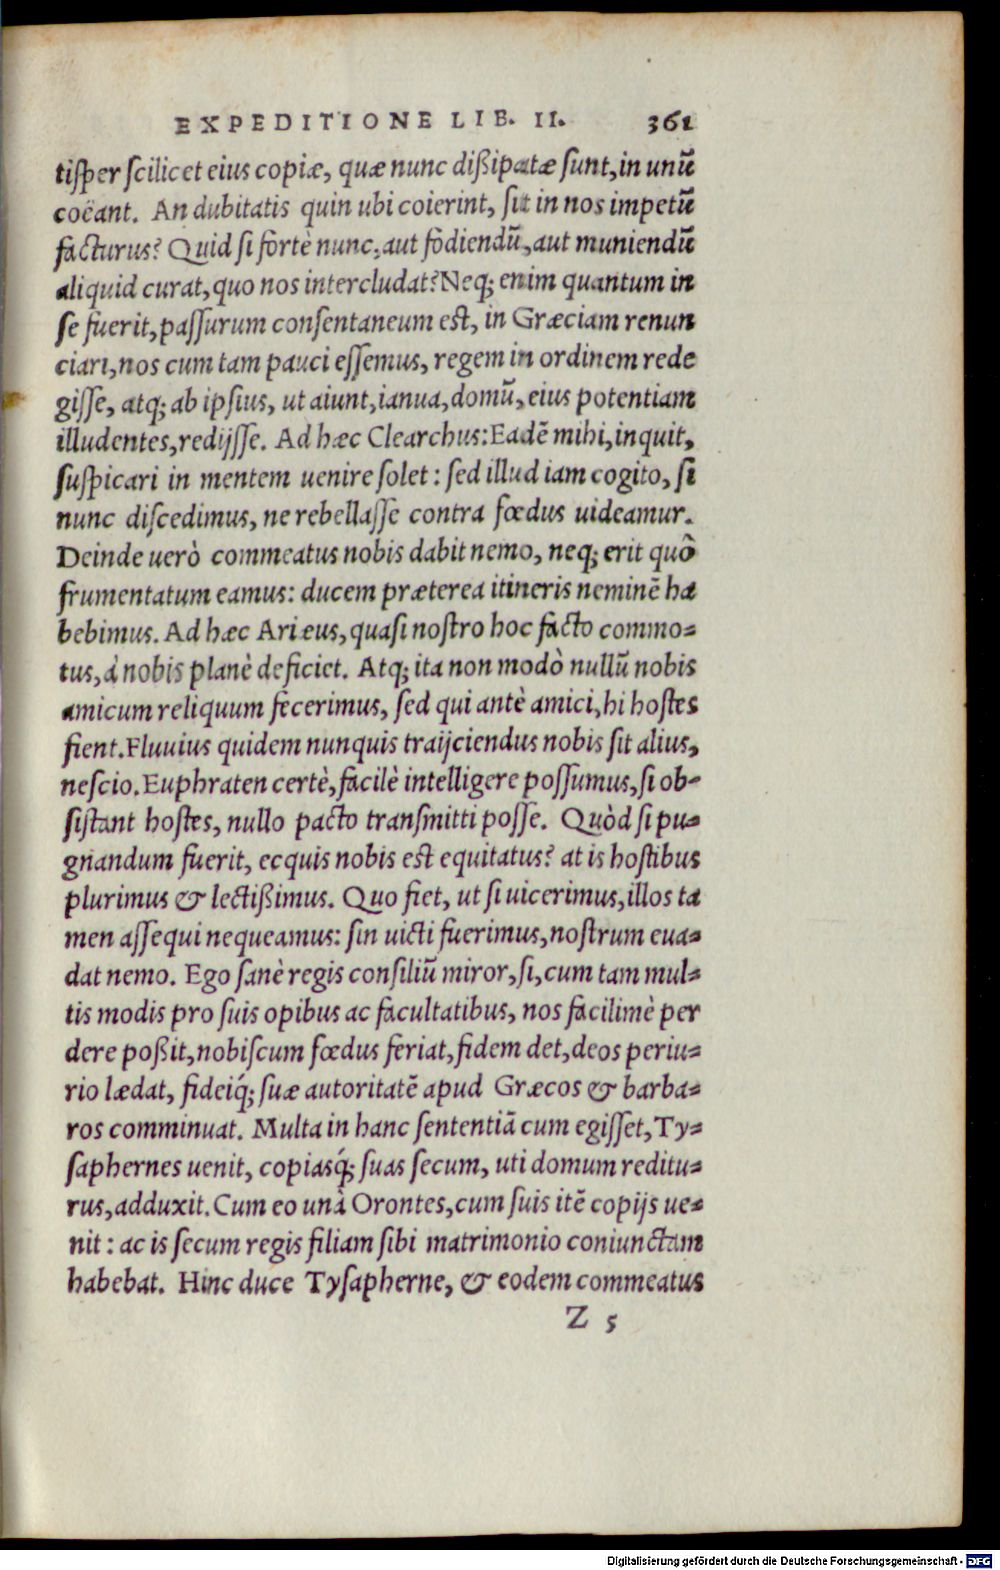 EXPEDITIONE LIB. II. 361
tiſper ſcilicet eius copiæ, quæ nunc dißipatæ ſunt, in unũ
coëant. An dubitatis quin ubi coierint, ſit in nos impetũ
facturus? Quid ſi fortè nunc, aut fodiendũ, aut muniendũ
aliquid curat, quo nos intercludat? Neq; enim quantum in
ſe fuerit, paſſurum conſentaneum est, in Græciam renun
ciari, nos cum tam pauci eſſemus, regem in ordinem rede
giſſe, atq; ab ipſius, ut aiunt, ianua, domũ, eius potentiam
illudentes, redijſſe. Ad hæc Clearchus: Eadẽ mihi, inquit,
ſuſpicari in mentem uenire ſolet: ſed illud iam cogito, ſi
nunc diſcedimus, ne rebellaſſe contra fœdus uideamur.
Deinde uerò commeatus nobis dabit nemo, neq; erit quò
frumentatum eamus: ducem præterea itineris neminẽ ha
bebimus. Ad hæc Ariæus, quaſi noſtro hoc facto commo-
tus, à nobis planè deficiet. Atq; ita non modò nullũ nobis
amicum reliquum fecerimus, ſed qui antè amici, hi hoſtes
fient. Fluuius quidem nunquis traijciendus nobis ſit alius,
neſcio. Euphraten certè, facilè intelligere poſſumus, ſi ob-
ſiſtant hoſtes, nullo pacto tranſmitti poſſe. Quòd ſi pu-
gnandum fuerit, ecquis nobis est equitatus? at is hoſtibus
plurimus & lectißimus. Quo fiet, ut ſi uicerimus, illos ta
men aſſequi nequeamus: ſin uicti fuerimus, noſtrum eua-
dat nemo. Ego ſanè regis conſiliũ miror, ſi, cum tam mul-
tis modis pro ſuis opibus ac facultatibus, nos facilimè per
dere poßit, nobiſcum fœdus feriat, fidem det, deos periu-
rio lædat, fideiq́; ſuæ autoritatẽ apud Græcos & barba-
ros comminuat. Multa in hanc ſententiã cum egiſſet, Ty-
ſaphernes uenit, copiasq́; ſuas ſecum, uti domum reditu-
rus, adduxit. Cum eo unà Orontes, cum ſuis itẽ copijs ue-
nit: ac is ſecum regis filiam ſibi matrimonio coniunctam
habebat. Hinc duce Tyſapherne, & eodem commeatus
Z 5
Digitalisierung gefördert durch die Deutsche Forschungsgemeinschaft - DFG